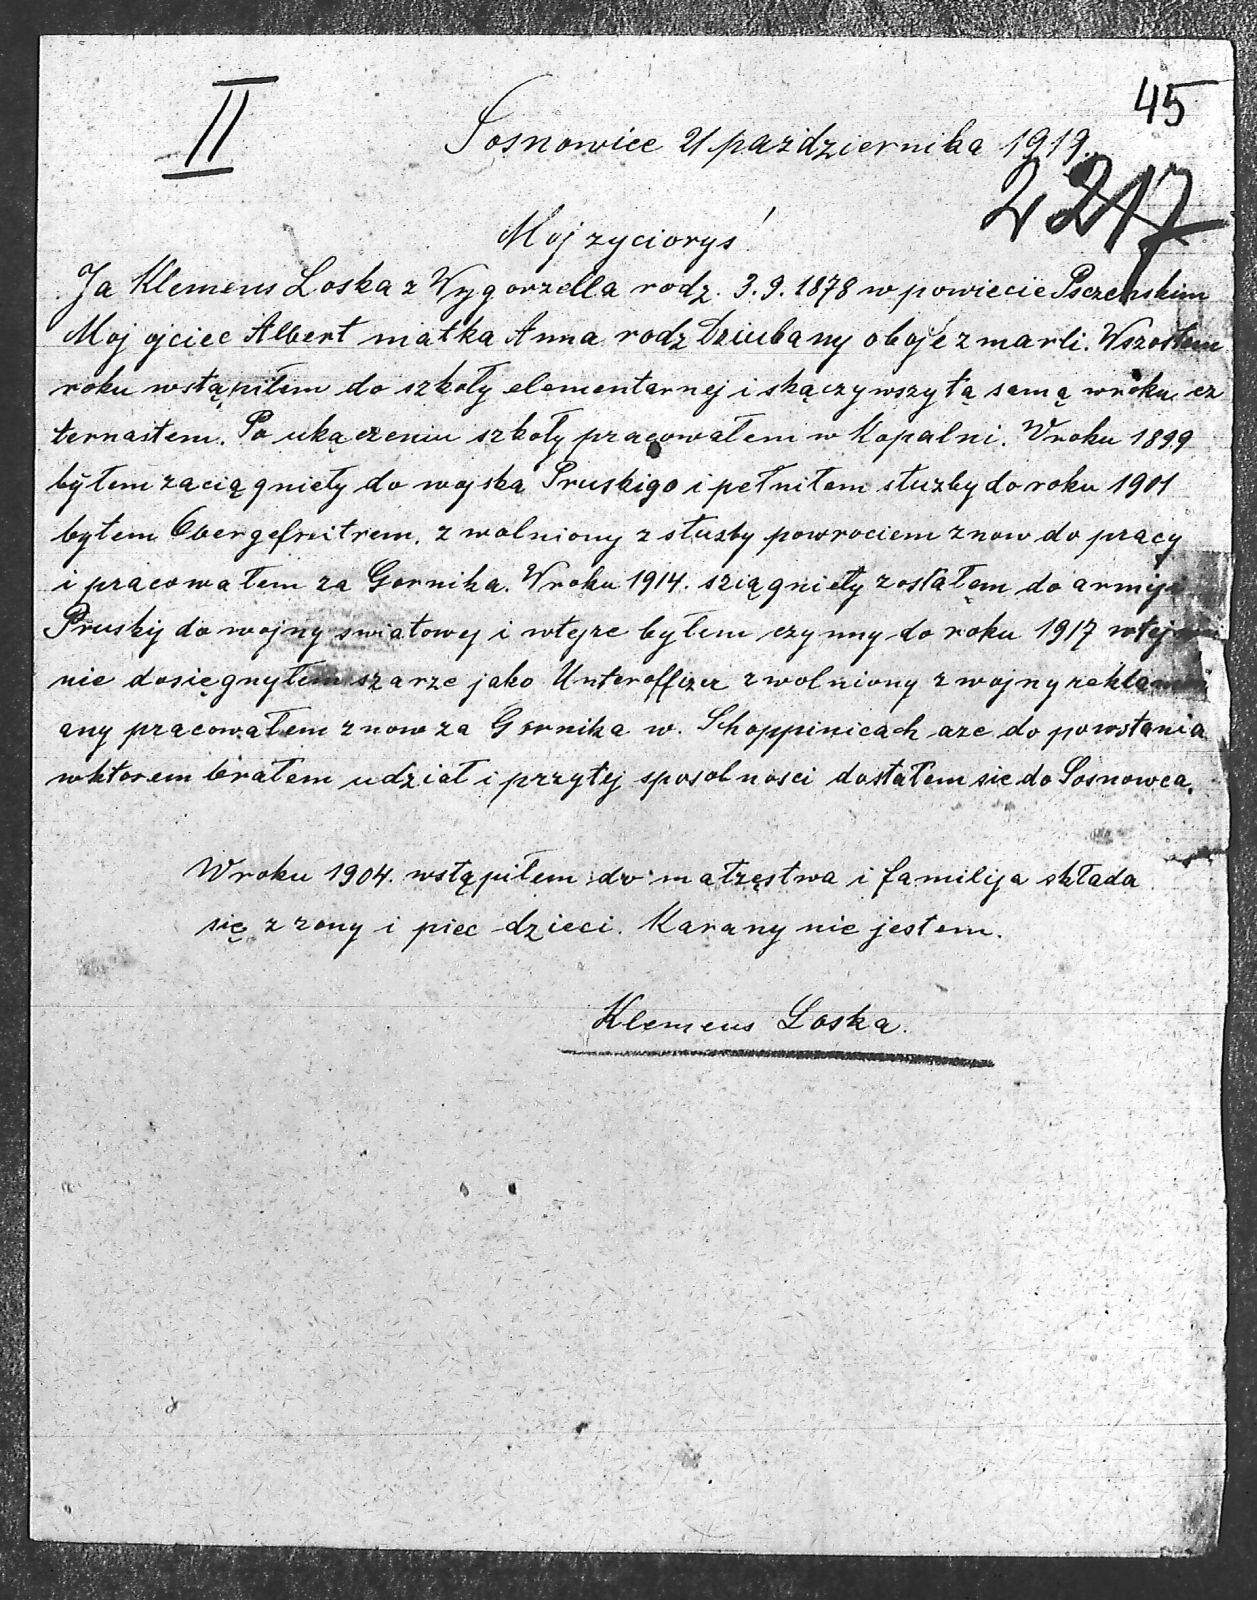 II
45
Sosnowice 21 pazdziernika 1919.
2217
Moj zyciorys!
Ja Klemens Loska z Wygorzella rodz. 3.9.1878 w powiecie Psczenskim
Moj ojciec Albert matka Anna rodz Dziubany oboje zmarli. Wszostem
roku wstąpiłem do szkoły elementarnej i skączywszy tą samą wroku cz
ternastem. Po ukączeniu szkoły pracowałem w Kopalni. Wroku 1899
byłem zaciągniety do wojska Pruskigo i pełniłem słuzby do roku 1901
byłem Obergefreitrem. zwolniony z słuzby powrociem znow do pracy
i pracowałem za Gornika. Wroku 1914. sziągniety zostałem do armije
Pruskij do wojny swiatowej i wtejze byłem czynny do roku 1917 wtej
nie dosięgnyłem szarze jako Unteroffizer zwolniony z wojny reklamow
any pracowałem znow za Gornika w. Schoppinicach aze do powstania
wktorem brałem udział i przytej sposobnosci dostałem sie do Sosnowca.
Wroku 1904. wstąpiłem do małzęstwa i familija składa
się z zony i piec dzieci. Karany nie jestem.
Klemens Loska.